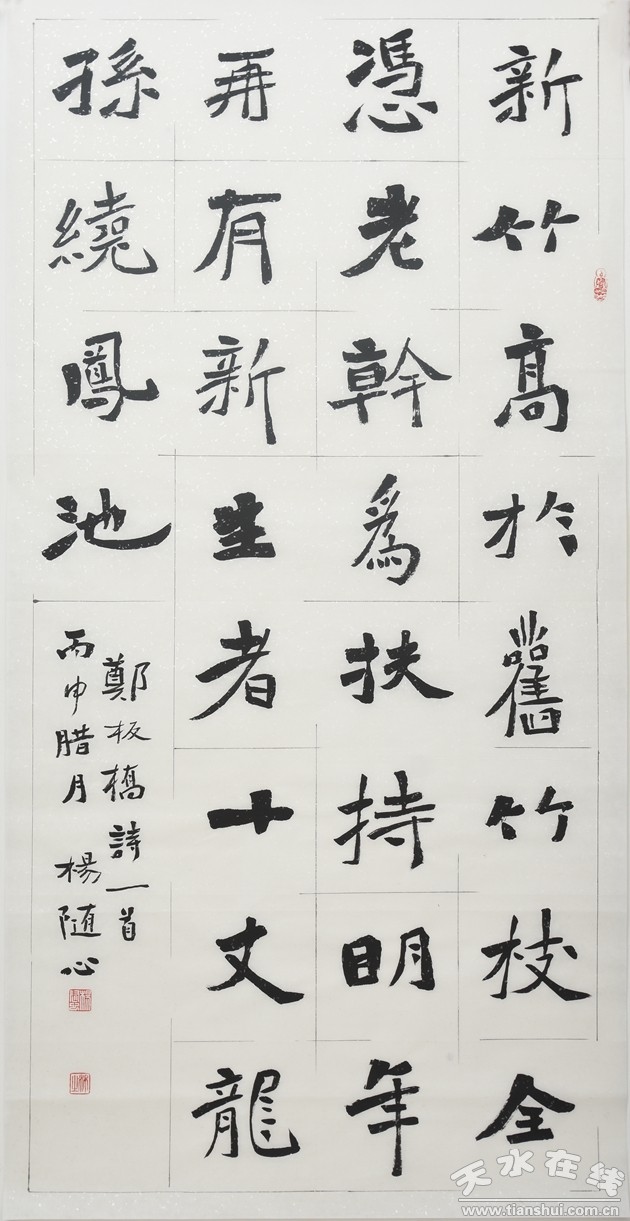 新竹高於舊竹枝全
憑老幹爲扶持明年
再有新生者十丈龍
孫繞鳳池
鄭板橋詩一首
丙申腊月 楊随心
天水在线
www.tianshui.com.cn